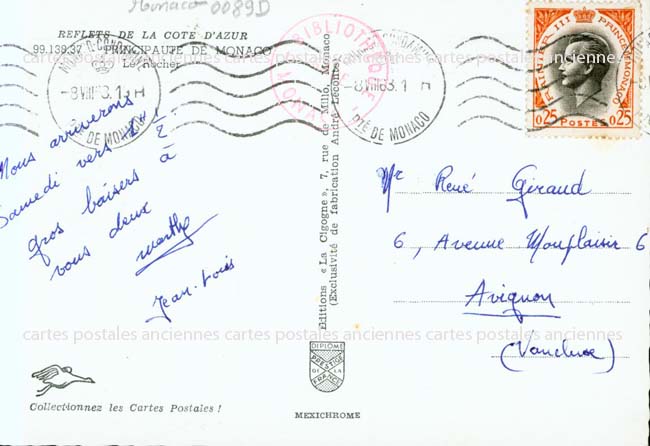 Monaco 0089D
REFLETS DE LA COTE D'AZUR
99.138.37 PRINCIPAUTÉ DE MONACO
Le Rocher
-8 VIII 63.1 H
DE MONACO
Nous arriverons
Samedi vers
gros baisers à
vous deux
Marthe
Jean-Louis
Collectionnez les Cartes Postales !
Editions «La Cigogne», 7, rue de Millo, Monaco
(Exclusivité de fabrication André Leconte)
DIPLOME
PRESTIGE
DE LA
FRANCE
MEXICHROME
BIBLIOTHEQUE
MONACO
-8 VIII 63.1 H
PTÉ DE MONACO
RAINIER III PRINCE DE MONACO
0,25 POSTES 0,25
Mr René Giraud
6, Avenue Monplaisir 6
Avignon
(Vaucluse)
cartes postales anciennes cartes postales anciennes cartes postales anciennes
cartes postales anciennes cartes postales anciennes cartes postales anciennes